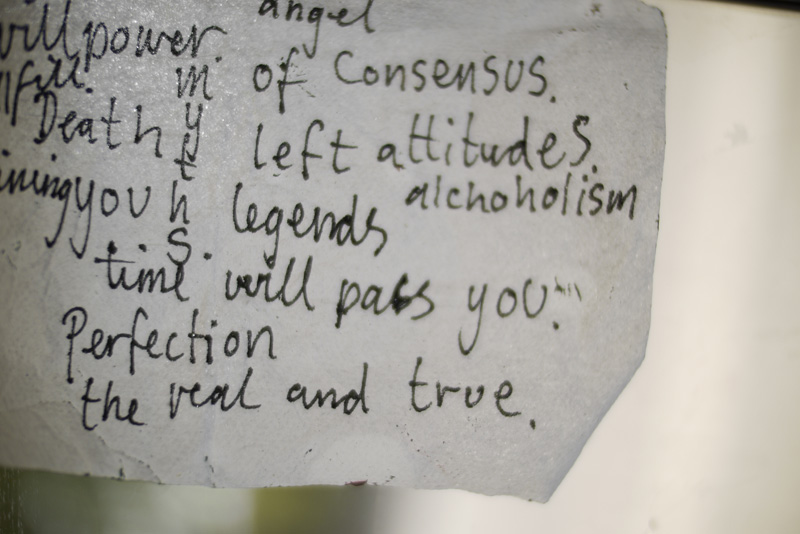 angel
willpower. of Consensus.
Death left attitudes.
you legends alchoholism
myths.
time will pass you.
Perfection
the real and true.